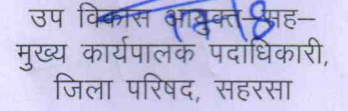 उप विकास आयुक्त-सह-
मुख्य कार्यपालक पदाधिकारी,
जिला परिषद, सहरसा